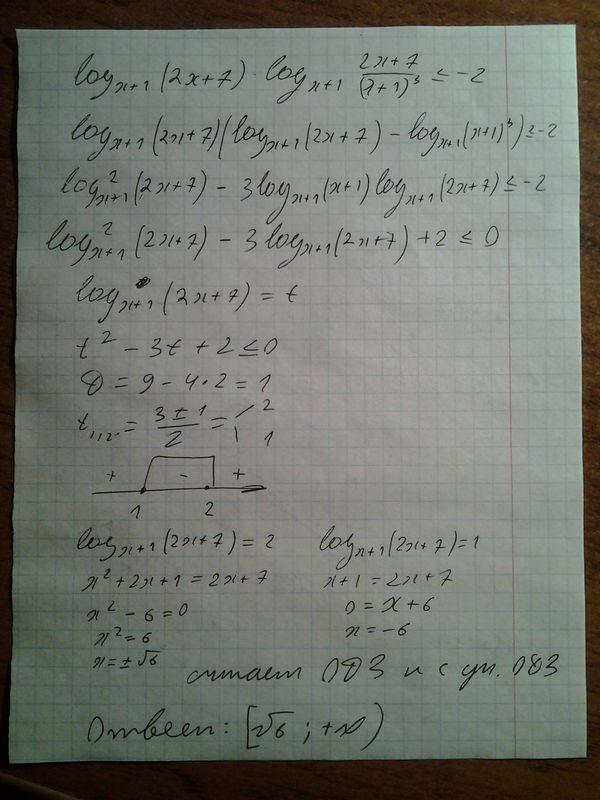 log_{x+1}(2x+7) · log_{x+1} \frac{2x+7}{(x+1)^3} ≤ -2
log_{x+1}(2x+7)(log_{x+1}(2x+7) - log_{x+1}(x+1)^3) ≤ -2
log^2_{x+1}(2x+7) - 3log_{x+1}(x+1)log_{x+1}(2x+7) ≤ -2
log^2_{x+1}(2x+7) - 3log_{x+1}(2x+7) + 2 ≤ 0
log_{x+1}(2x+7) = t
t^2 - 3t + 2 ≤ 0
D = 9 - 4·2 = 1
t_{1,2} = \frac{3±1}{2} = 2
1
+ - +
1 2
log_{x+1}(2x+7) = 2
x^2+2x+1 = 2x+7
x^2 - 6 = 0
x^2 = 6
x = ±√6
log_{x+1}(2x+7) = 1
x+1 = 2x+7
0 = x+6
x = -6
считаем ОДЗ и с уч. ОДЗ
Ответ: [√6; +∞)